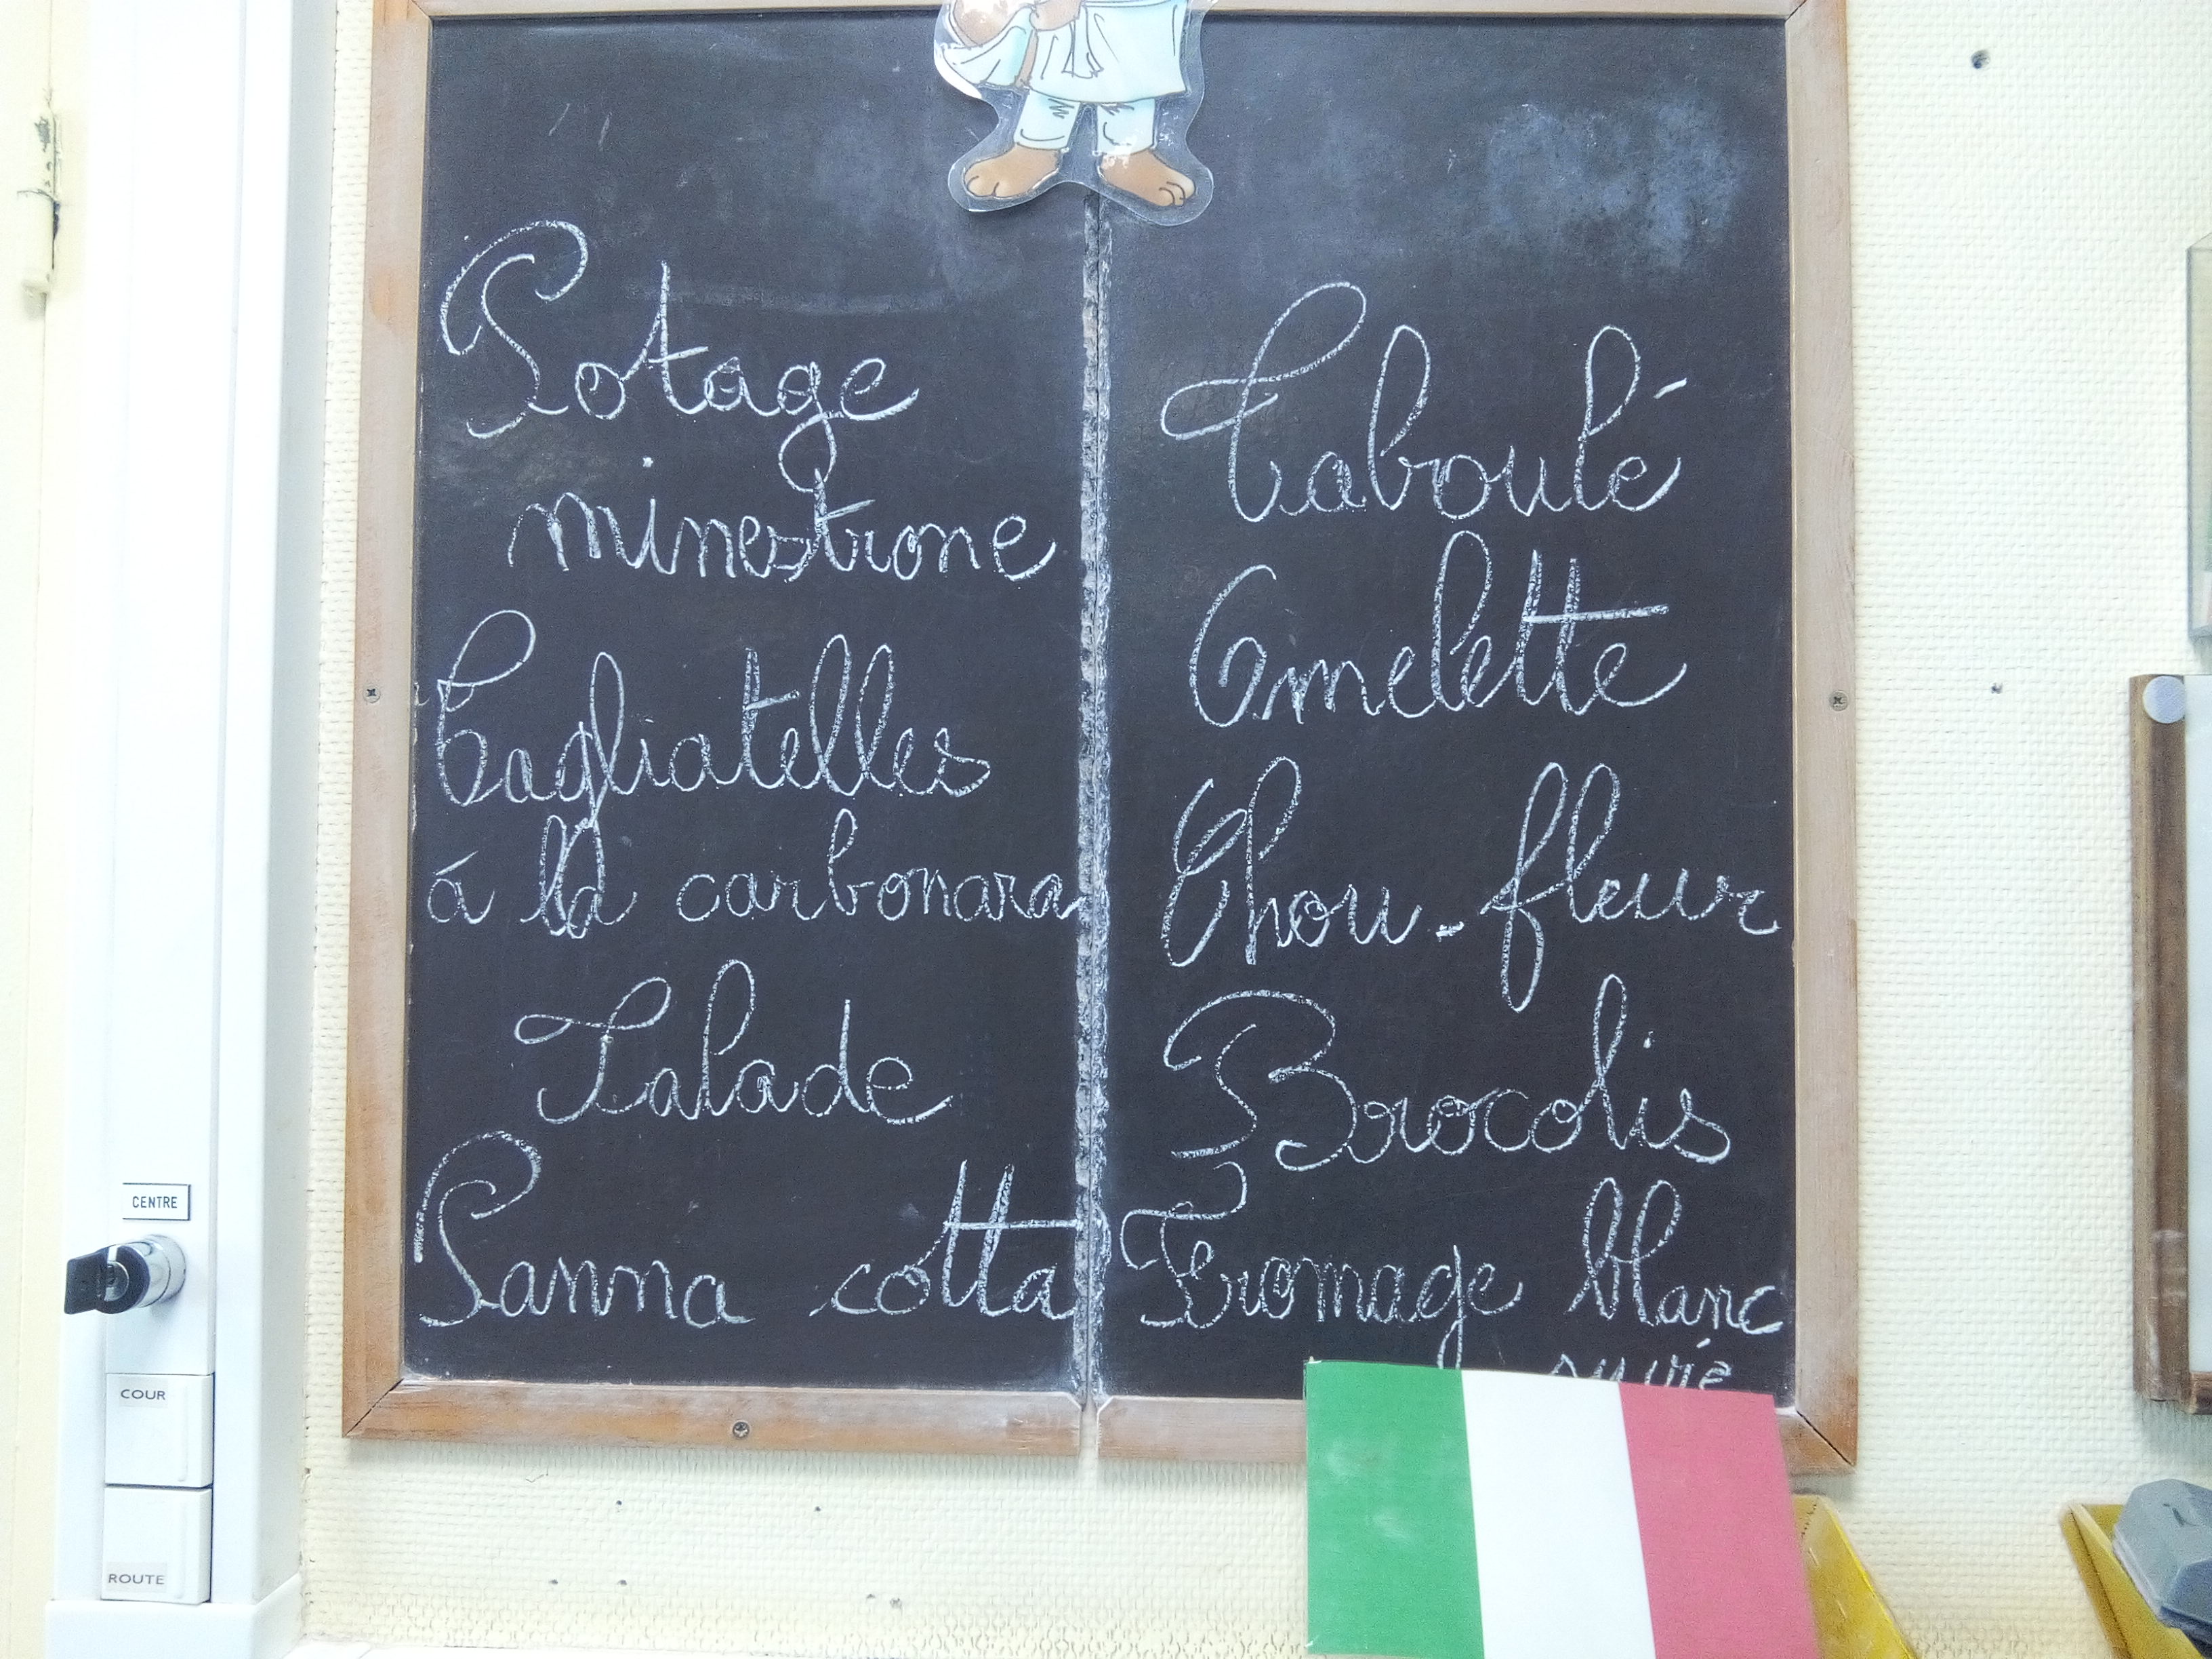 Potage
minestrone
Tagliatelles
á la carbonara
Salade
Panna cotta
Taboulé
Omelette
Chou-fleur
Brocolis
Fromage blanc
CENTRE
COUR
ROUTE